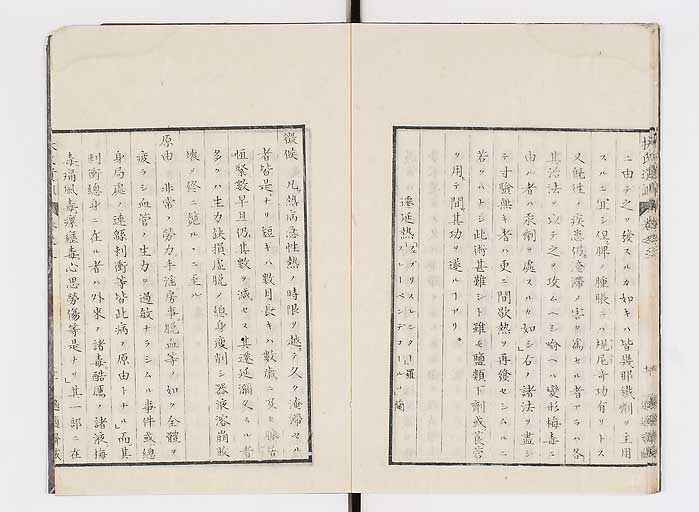 ニ由テ之ヲ發スルカ如キハ皆幾那鐵劑ヲ主用
スルニ宜シ但脾ノ腫脹ニハ規尼奇功有リトス
又慨性ノ疾患仍淹滯ノ害ヲ爲セル者アラハ各
其治法ヲ以テ之ヲ攻ムヘシ喻ヘハ變形梅毒ニ
由ル者ハ汞劑ヲ處スルカ如シ右ノ諸法ヲ盡シ
テ寸驗無キ者ハ更ニ間歇熱ヲ再發センムルニ
若クハナシ此術甚難シト雖モ鹽類下劑或莨菪
ヲ用テ間其功ヲ遂ルヿアリ
遷延熱
徴候 凡熱病急性熱ノ時限ヲ越テ久ク淹滯セル
者皆是ナリ短キハ數月長キハ數歳ニ及ヒ脈
恒緊數早旦仍其數ヲ減セス其遷延漸久スル者
多クハ生力缺損虚脱シ總身瘦削シ器液溶崩敗
壞シ終ニ斃ルヽニ至ル
原由 非常ノ勞力手淫房事脱血等ノ如ク全體ヲ
疲ラシ血管ノ生力ヲ過敏ナラシムル事件或總
身局處ノ連緜刺衝等皆此病ノ原由トナル而其
刺衝總身ニ在ル者ハ外來ノ諸毒酷厲ノ諸液梅
毒痛風毒瘰癧毒心思勞傷等是ナリ其一部ニ在